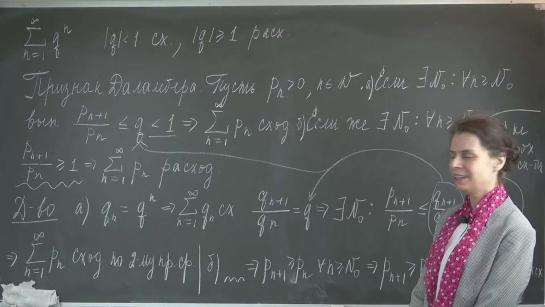 ∞ ∑ n=1 qⁿ |q|<1 сх., |q|≥1 расх.
Признак Даламбера. Пусть pₙ>0, n∈N. а) Если ∃N₀: ∀n≥N₀
вып pₙ₊₁/pₙ ≤ q < 1 ⇒ ∞ ∑ n=1 pₙ сход б) Если же ∃N₀: ∀n≥ не
pₙ₊₁/pₙ ≥ 1 ⇒ ∞ ∑ n=1 pₙ расход.
Д-во а) qₙ = qⁿ ⇒ ∞ ∑ n=1 qₙ сх qₙ₊₁/qₙ = q ⇒ ∃N₀: pₙ₊₁/pₙ ≤ qₙ₊₁
⇒ ∞ ∑ n=1 pₙ сход по 2му пр.ср | б) ⇒ pₙ₊₁ ≥ pₙ ∀n≥N₀ ⇒ pₙ₊₁ ≥